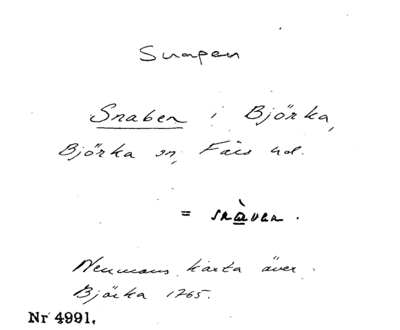 Snapen
Snaben i Björka,
Björka sn, Färs hd.
= snàven.
Neumans karta över
Björka 1765.
Nr 4991.